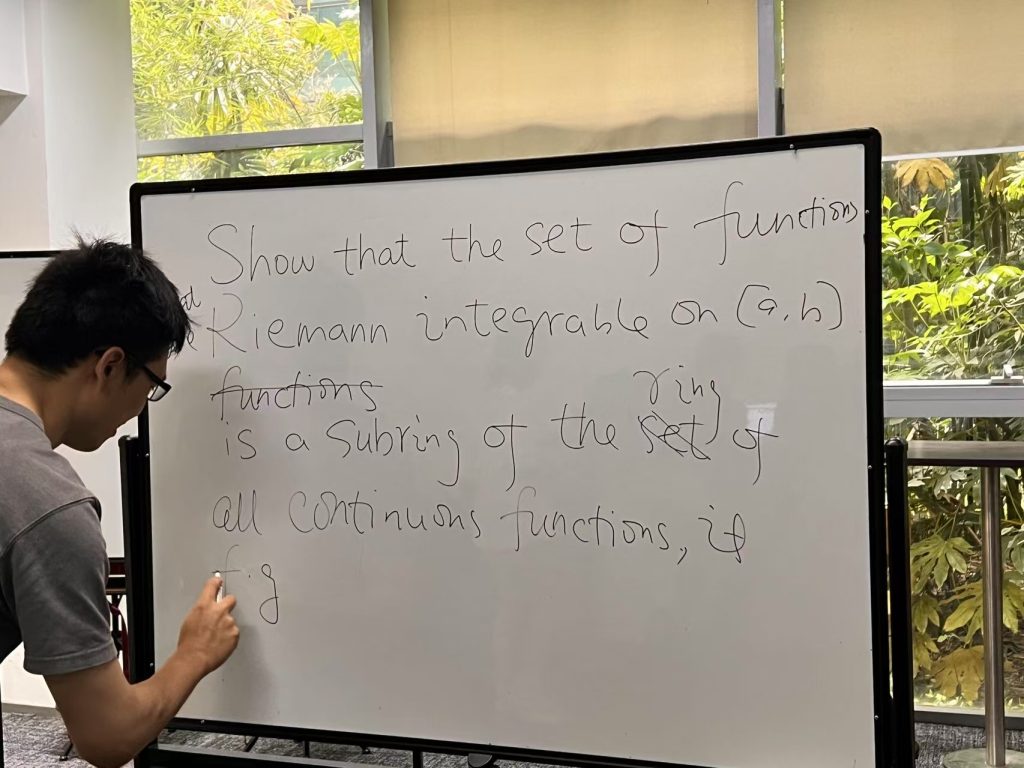 Show that the set of functions
Riemann integrable on (a,b)
functions
ring
is a subring of the set of
all continuous functions, if
f.g